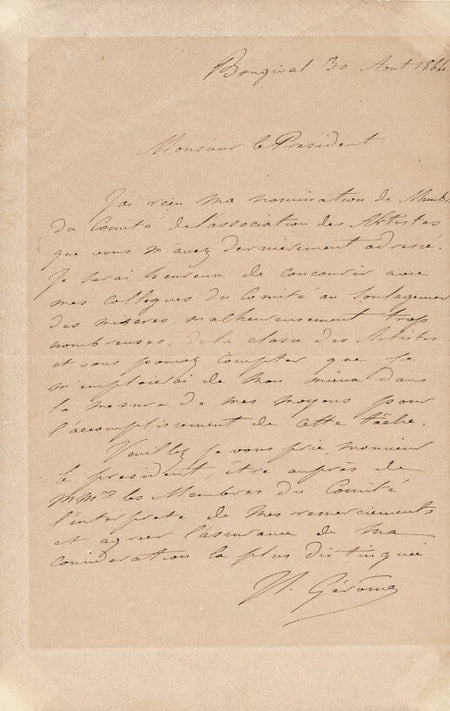 Bougival 30 Aout 186
Monsieur le Président
J'ai reçu ma nomination de Membre
du Comité de l'association des Artistes
que vous m'avez dernièrement adressé.
Je serai heureux de concourir avec
mes collègues du Comité au soulagement
des misères, malheureusement trop
nombreuses, de la classe des Artistes
et vous pouvez compter que je
m'emploierai de mon mieux dans
la mesure de mes moyens pour
l'accomplissement de cette tâche.
Veuillez je vous prie, monsieur
le président, être auprès de
MMrs les Membres du Comité
l'interprete de mes remerciements
et agréer l'assurance de ma
considération la plus distinguée
Gérôme